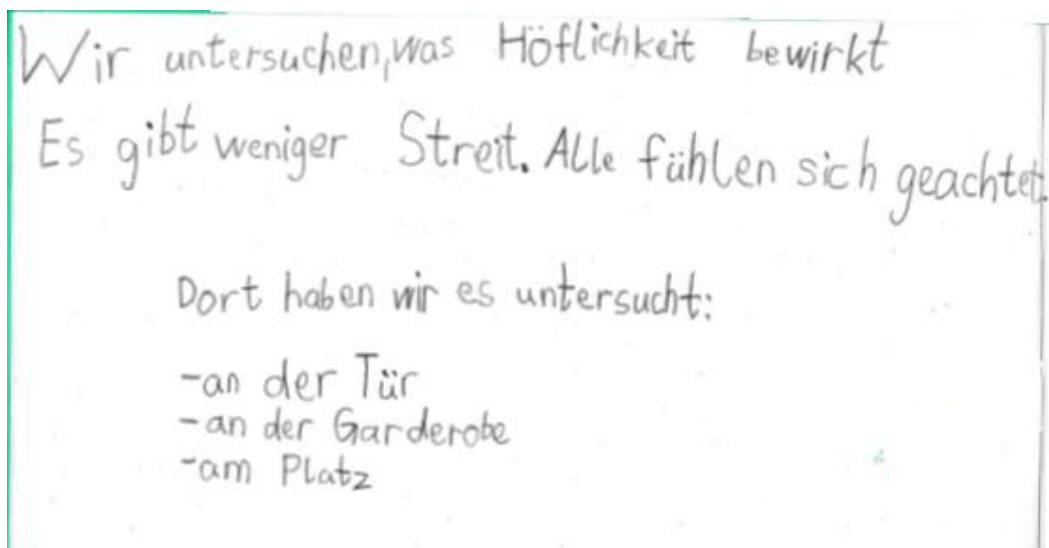 Wir untersuchen, was Höflichkeit bewirkt
Es gibt weniger Streit. Alle fühlen sich geachtet.
Dort haben wir es untersucht:
-an der Tür
-an der Garderobe
-am Platz